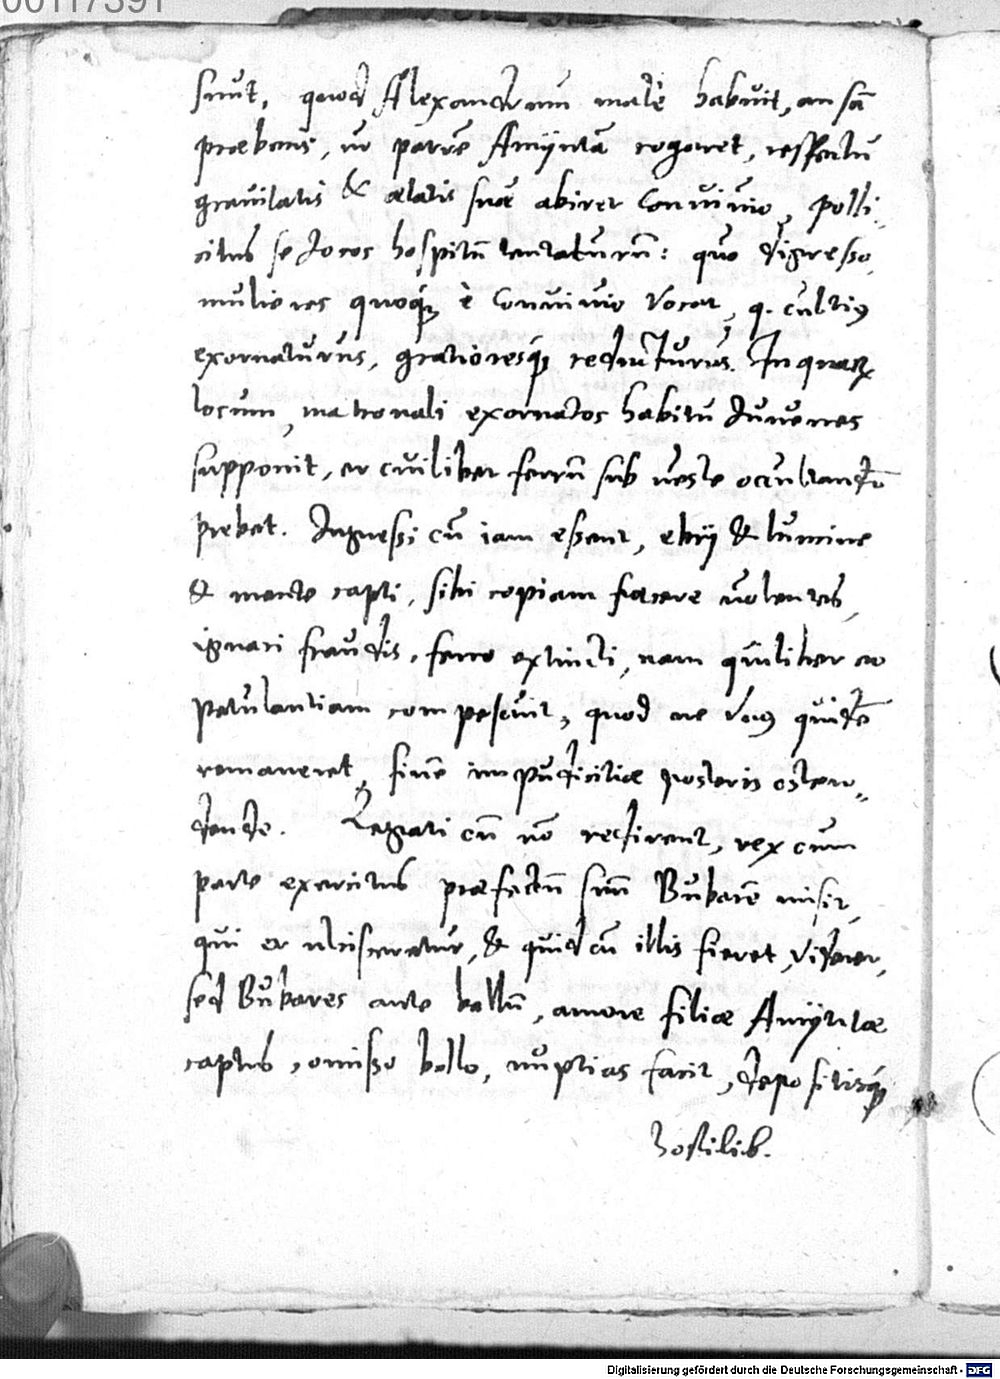 00117391
sinit, quod Alexandrum male habuit, ansā
præbens, ut patrē Amÿntā rogaret, respectu
gravitatis & ætatis suæ abiret convivio, polli„
citus se Iocos hospitū tentaturū: quo digresso
mulieres quoqꝫ è convivio vocat, q. cultiꝰ
exornaturus, gratioresqꝫ reducturus. In quarꝝ
locum, matronali exornatos habitu Iuvenes
supponit, et cuilibet ferrū sub veste occultandū
prebet. Ingressi cū iam essent, ebrij & lumine
& mente capti, sibi copiam facere volentes,
ignari fraudis, ferro extincti, nam quilibet eo
petulantiam compescuit, quod ne vnꝰ quidē
remaneret, finē impudicitiæ posteris osten„
dendo. Legati cū nō redirent, rex cum
parte exercitus præfectū suū Bubarē misit,
qui et ulcisceretur, & quid cū illis fieret, videret,
sed Bubares ante bellū, amore filiæ Amÿntæ
captus, omisso bello, nuptias facit, depositisqꝫ
hostilib.
Digitalisierung gefördert durch die Deutsche Forschungsgemeinschaft - DFG